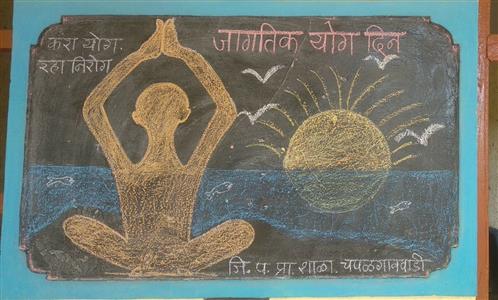 करा योग.
रहा निरोग
जागतिक योग दिन
जि. प. प्रा. शाळा. चपळगाववाडी